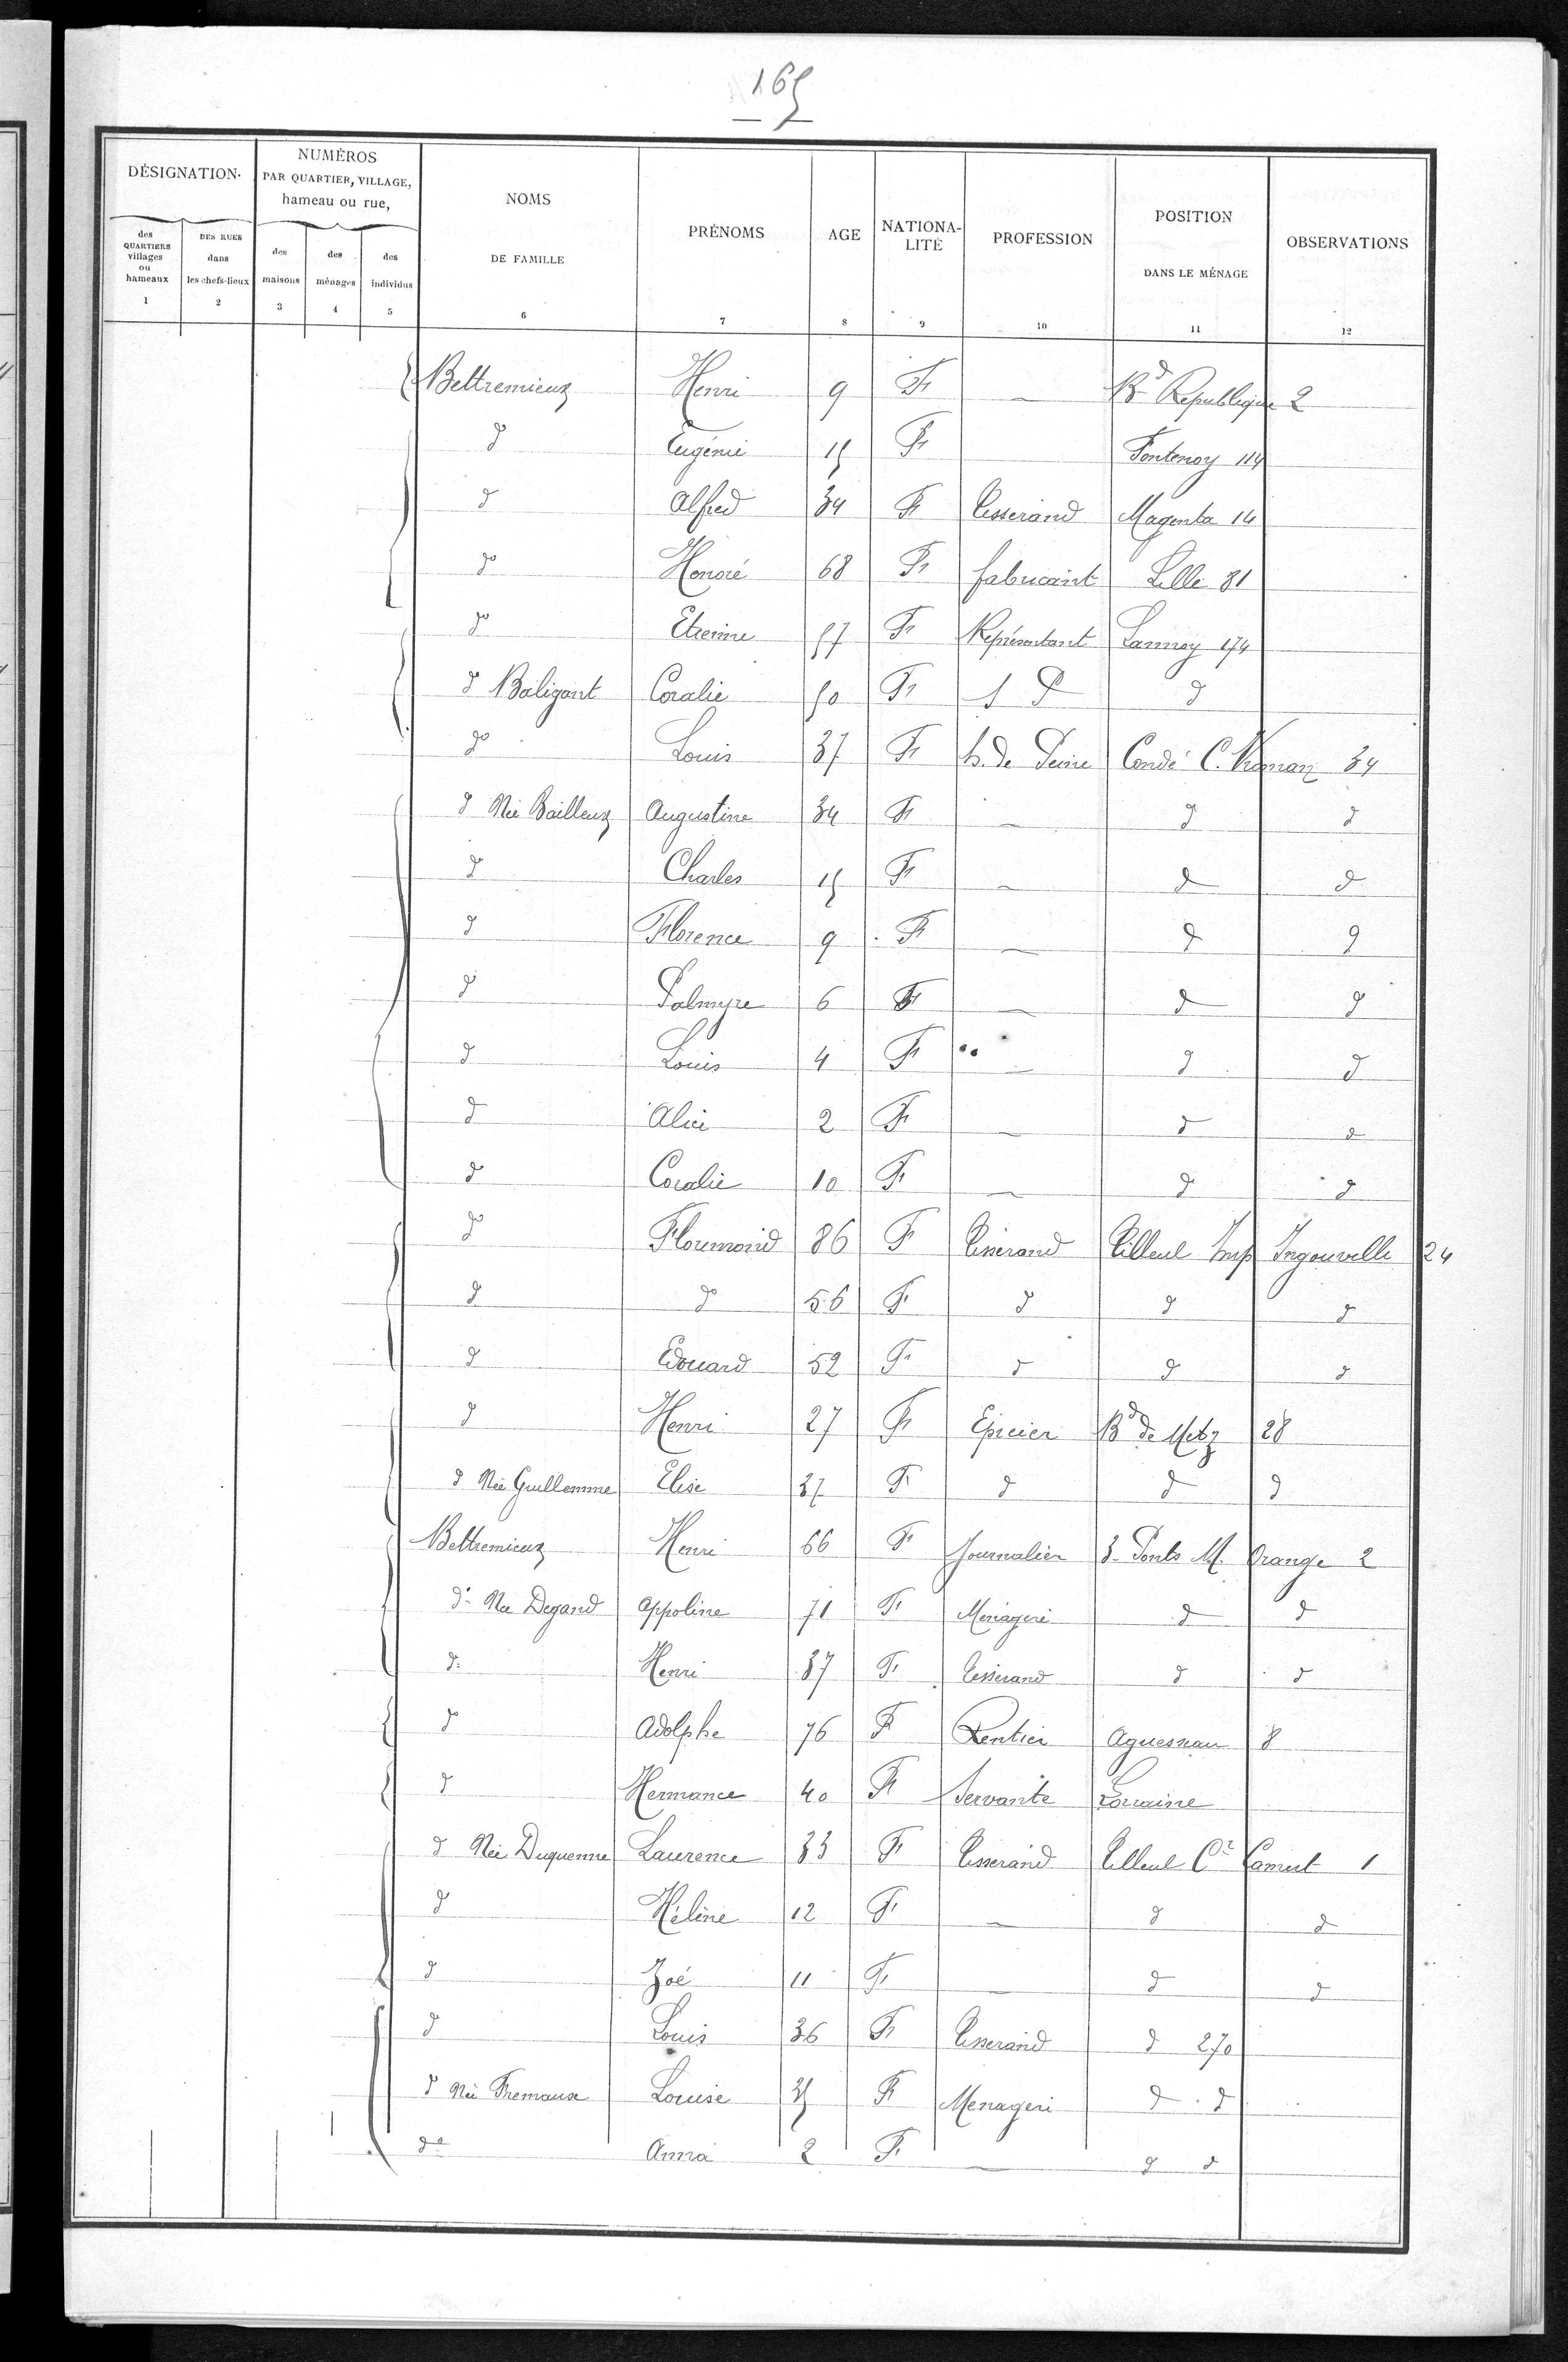 165
DÉSIGNATION.
NUMÉROS
PAR QUARTIER, VILLAGE,
hameau ou rue,
des QUARTIERS villages ou hameaux
DES RUES dans les chefs-lieux
des maisons
des ménages
des individus
NOMS DE FAMILLE
PRÉNOMS
AGE
NATIONA-LITÉ
PROFESSION
POSITION DANS LE MÉNAGE
OBSERVATIONS
1 2 3 4 5 6 7 8 9 10 11 12
Beltremieux Henri 9 Fr — Bd Republique 2
d Eugénie 15 Fr Fontenoy 114
d Alfred 34 Fr Tisserand Magenta 14
do Honoré 68 Fr fabricant Lille 81
do Etienne 57 Fr Représentant Lannoy 174
d Baligant Coralie 50 Fr S P d
do Louis 37 Fr h. de Peine Condé C. 34
d Née Bailleux Augustine 34 Fr — d d
d Charles 15 Fr — d d
d Florence 9 Fr — d d
d Palmyre 6 Fr — d d
d Louis 4 Fr — d d
d Alice 2 Fr — d d
d Coralie 10 Fr — d d
do Florimond 86 Fr Tisserand Tilleul Imp Ingouville 24
d do 56 Fr d d d
d Edouard 52 Fr d d d
d Henri 27 Fr Epicier Bd de Metz 28
d Née Guillemme Elise 37 Fr d d d
Beltremieux Henri 66 Fr Journalier 3 Ponts M. Orange 2
d: Née Degand Appoline 71 Fr Ménagère d d
d: Henri 37 Fr Tisserand d d
d Adolphe 76 Fr Rentier Aguesseau 8
d Hermance 40 Fr Servante Lorraine
d Née Duquenne Laurence 33 Fr Tisserand Tilleul Cr 1
d Hélène 12 Fr — d d
d Zoé 11 Fr — d d
d Louis 36 Fr Tisserand d 270
d Née Fremaux Louise 35 Fr Menagere d d
do Anna 2 Fr — d d